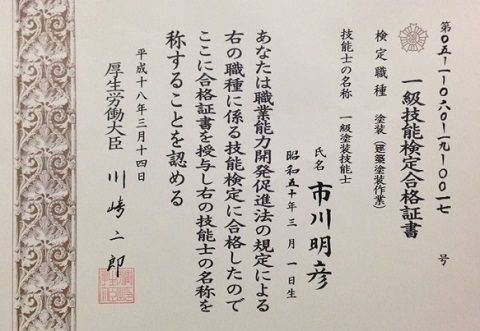 第05-1-060-19-0017号
一級技能検定合格証書
検定職種 塗装(建築塗装作業)
技能士の名称 一級塗装技能士
氏名 市川明彦
昭和五十年三月一日生
あなたは職業能力開発促進法の規定による
右の職種に係る技能検定に合格したので
ここに合格証書を授与し右の技能士の名称を
称することを認める
平成十八年三月十四日
厚生労働大臣 川崎二郎